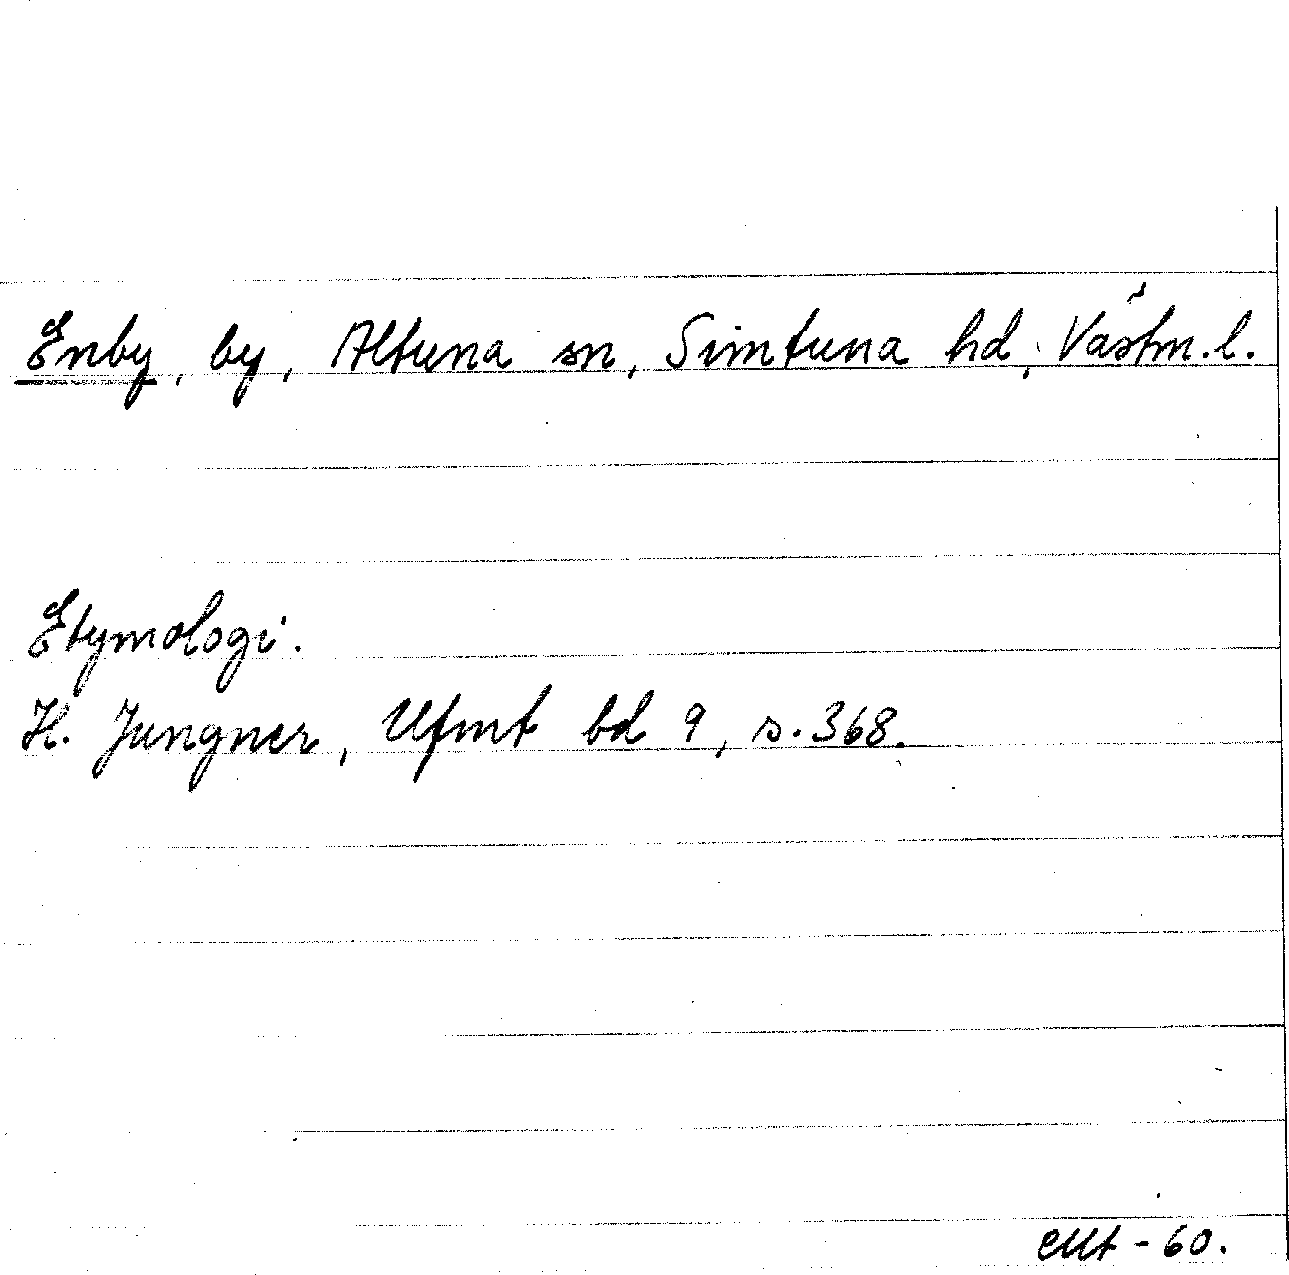 Enby, by, Altuna sn, Simtuna hd, Västm. l.
Etymologi.
H. Jungner, Ufmt bd 9, s. 368.
-60.